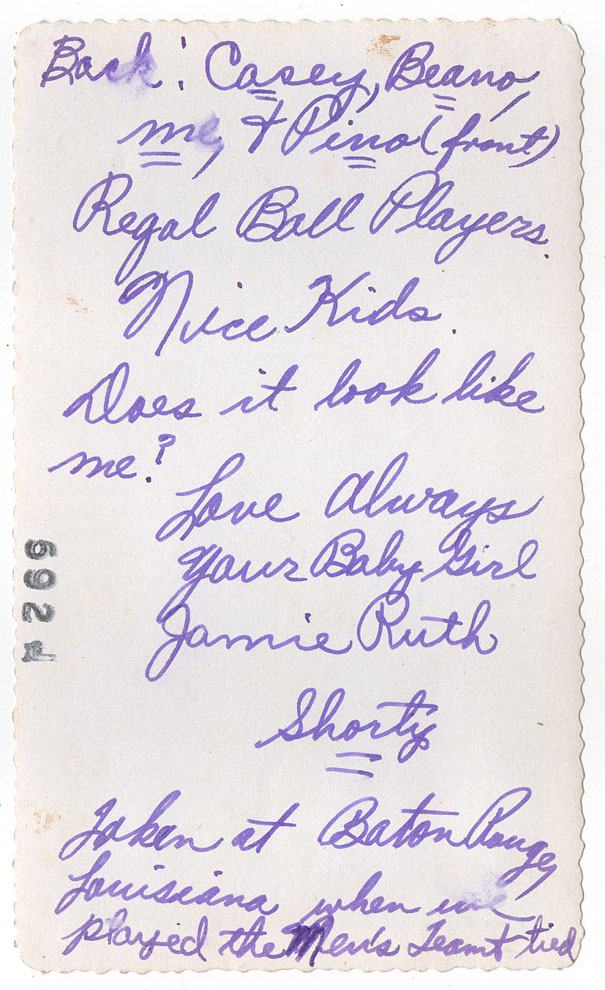 Back: Casey, Beano,
me, & Pino (front)
Regal Ball Players.
Nice Kids.
Does it look like
me?
Love Always
Your Baby Girl
Jamie Ruth
Shorty
Taken at Baton Rouge,
Louisiana when we
played the Men's Team & tied